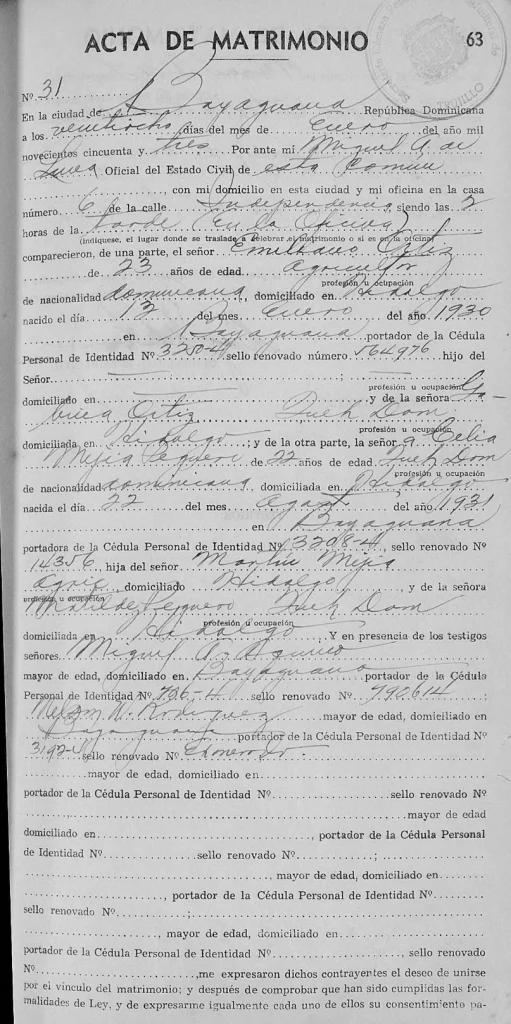 ACTA DE MATRIMONIO 63
TRUJILLO
Nº 31
En la ciudad de Bayaguana República Dominicana
a los veintiocho días del mes de Enero del año mil
novecientos cincuenta y tres Por ante mi Miguel A. de
Luna Oficial del Estado Civil de esta Comun
, con mi domicilio en esta ciudad y mi oficina en la casa
número 6 de la calle Independencia, siendo las 2
horas de la tarde (En la Oficina)
(indíquese, el lugar donde se traslade a celebrar el matrimonio o si es en la oficina)
comparecieron, de una parte, el señor Emiliano Ortiz
de 23 años de edad, Agricultor
profesión u ocupación
de nacionalidad dominicana, domiciliado en Hidalgo
nacido el día 13 del mes Enero del año 1930
en Bayaguana portador de la Cédula
Personal de Identidad Nº 3250-4 sello renovado número 564976 hijo del
Señor ;
profesión u ocupación
domiciliado en y de la señora
Ortiz Dom
profesión u ocupación
domiciliada en Hidalgo; y de la otra parte, la señora Celia
Mejia de 22 años de edad Dom
profesión u ocupación
de nacionalidad dominicana, domiciliada en Hidalgo
nacida el día 22 del mes Agost del año 1931
en Bayaguana
portadora de la Cédula Personal de Identidad Nº 3208-4, sello renovado Nº
14356, hija del señor Martin Mejia
Agric, domiciliado Hidalgo, y de la señora
profesión u ocupación
Matilde Dom
profesión u ocupación
domiciliada en Hidalgo. Y en presencia de los testigos
señores Miguel A. Aquino
mayor de edad, domiciliado en Bayaguana portador de la Cédula
Personal de Identidad Nº 736-4 sello renovado Nº 790614;
Nelson W. Rodriguez mayor de edad, domiciliado en
Bayaguana portador de la Cédula Personal de Identidad Nº
3192-4 sello renovado Nº
mayor de edad, domiciliado en
portador de la Cédula Personal de Identidad Nº sello renovado Nº
, mayor de edad
domiciliado en , portador de la Cédula Personal
de Identidad Nº sello renovado Nº ;
, mayor de edad, domiciliado en
, portador de la Cédula Personal de Identidad Nº
sello renovado Nº ;
, mayor de edad, domiciliado en
portador de la Cédula Personal de Identidad Nº , sello renovado
Nº ,me expresaron dichos contrayentes el deseo de unirse
por el vínculo del matrimonio; y después de comprobar que han sido cumplidas las for-
malidades de Ley, y de expresarme igualmente cada uno de ellos su consentimiento pa-